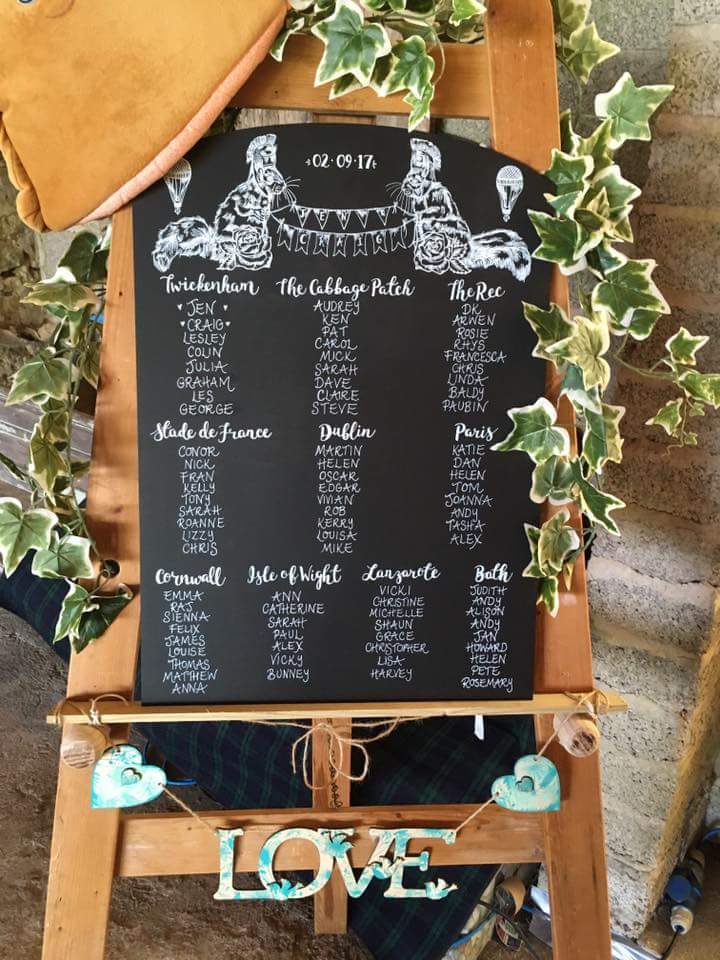 02·09·17
JEN &
CRAIG
Twickenham
♥ JEN ♥
♥ CRAIG ♥
LESLEY
COLIN
JULIA
GRAHAM
LES
GEORGE
The Cabbage Patch
AUDREY
KEN
PAT
CAROL
MICK
SARAH
DAVE
CLAIRE
STEVE
The Rec
DK
ARWEN
ROSIE
RHYS
FRANCESCA
CHRIS
LINDA
BALDY
PAUBIN
Stade de France
CONOR
NICK
FRAN
KELLY
TONY
SARAH
ROANNE
LIZZY
CHRIS
Dublin
MARTIN
HELEN
OSCAR
EDGAR
VIVIAN
ROB
KERRY
LOUISA
MIKE
Paris
KATIE
DAN
HELEN
TOM
JOANNA
ANDY
TASHA
ALEX
Cornwall
EMMA
RAJ
SIENNA
FELIX
JAMES
LOUISE
THOMAS
MATTHEW
ANNA
Isle of Wight
ANN
CATHERINE
SARAH
PAUL
ALEX
VICKY
BUNNEY
Lanzarote
VICKI
CHRISTINE
MICHELLE
SHAUN
GRACE
CHRISTOPHER
LISA
HARVEY
Bath
JUDITH
ANDY
ALISON
ANDY
JAN
HOWARD
HELEN
PETE
ROSEMARY
LOVE